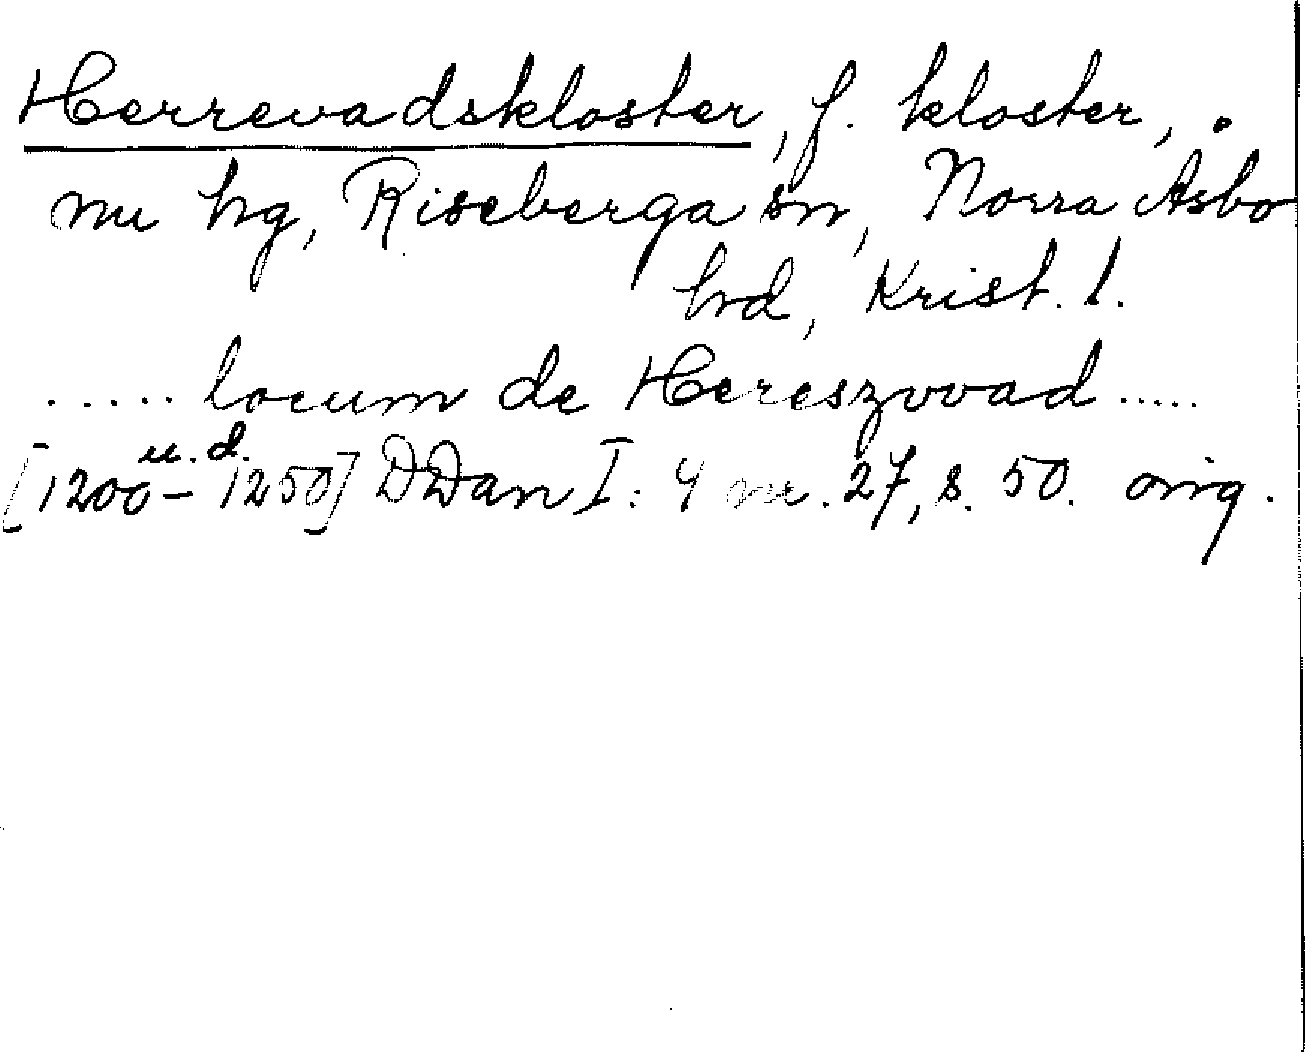 Herrevadskloster, f. kloster,
nu hg, Riseberga sn, Norra Åsbo
hd, Krist. l.
..... locum de Hereszvvad .....
u. d.
[1200 – 1250] DDan I: 4 nr. 27, s. 50. orig.